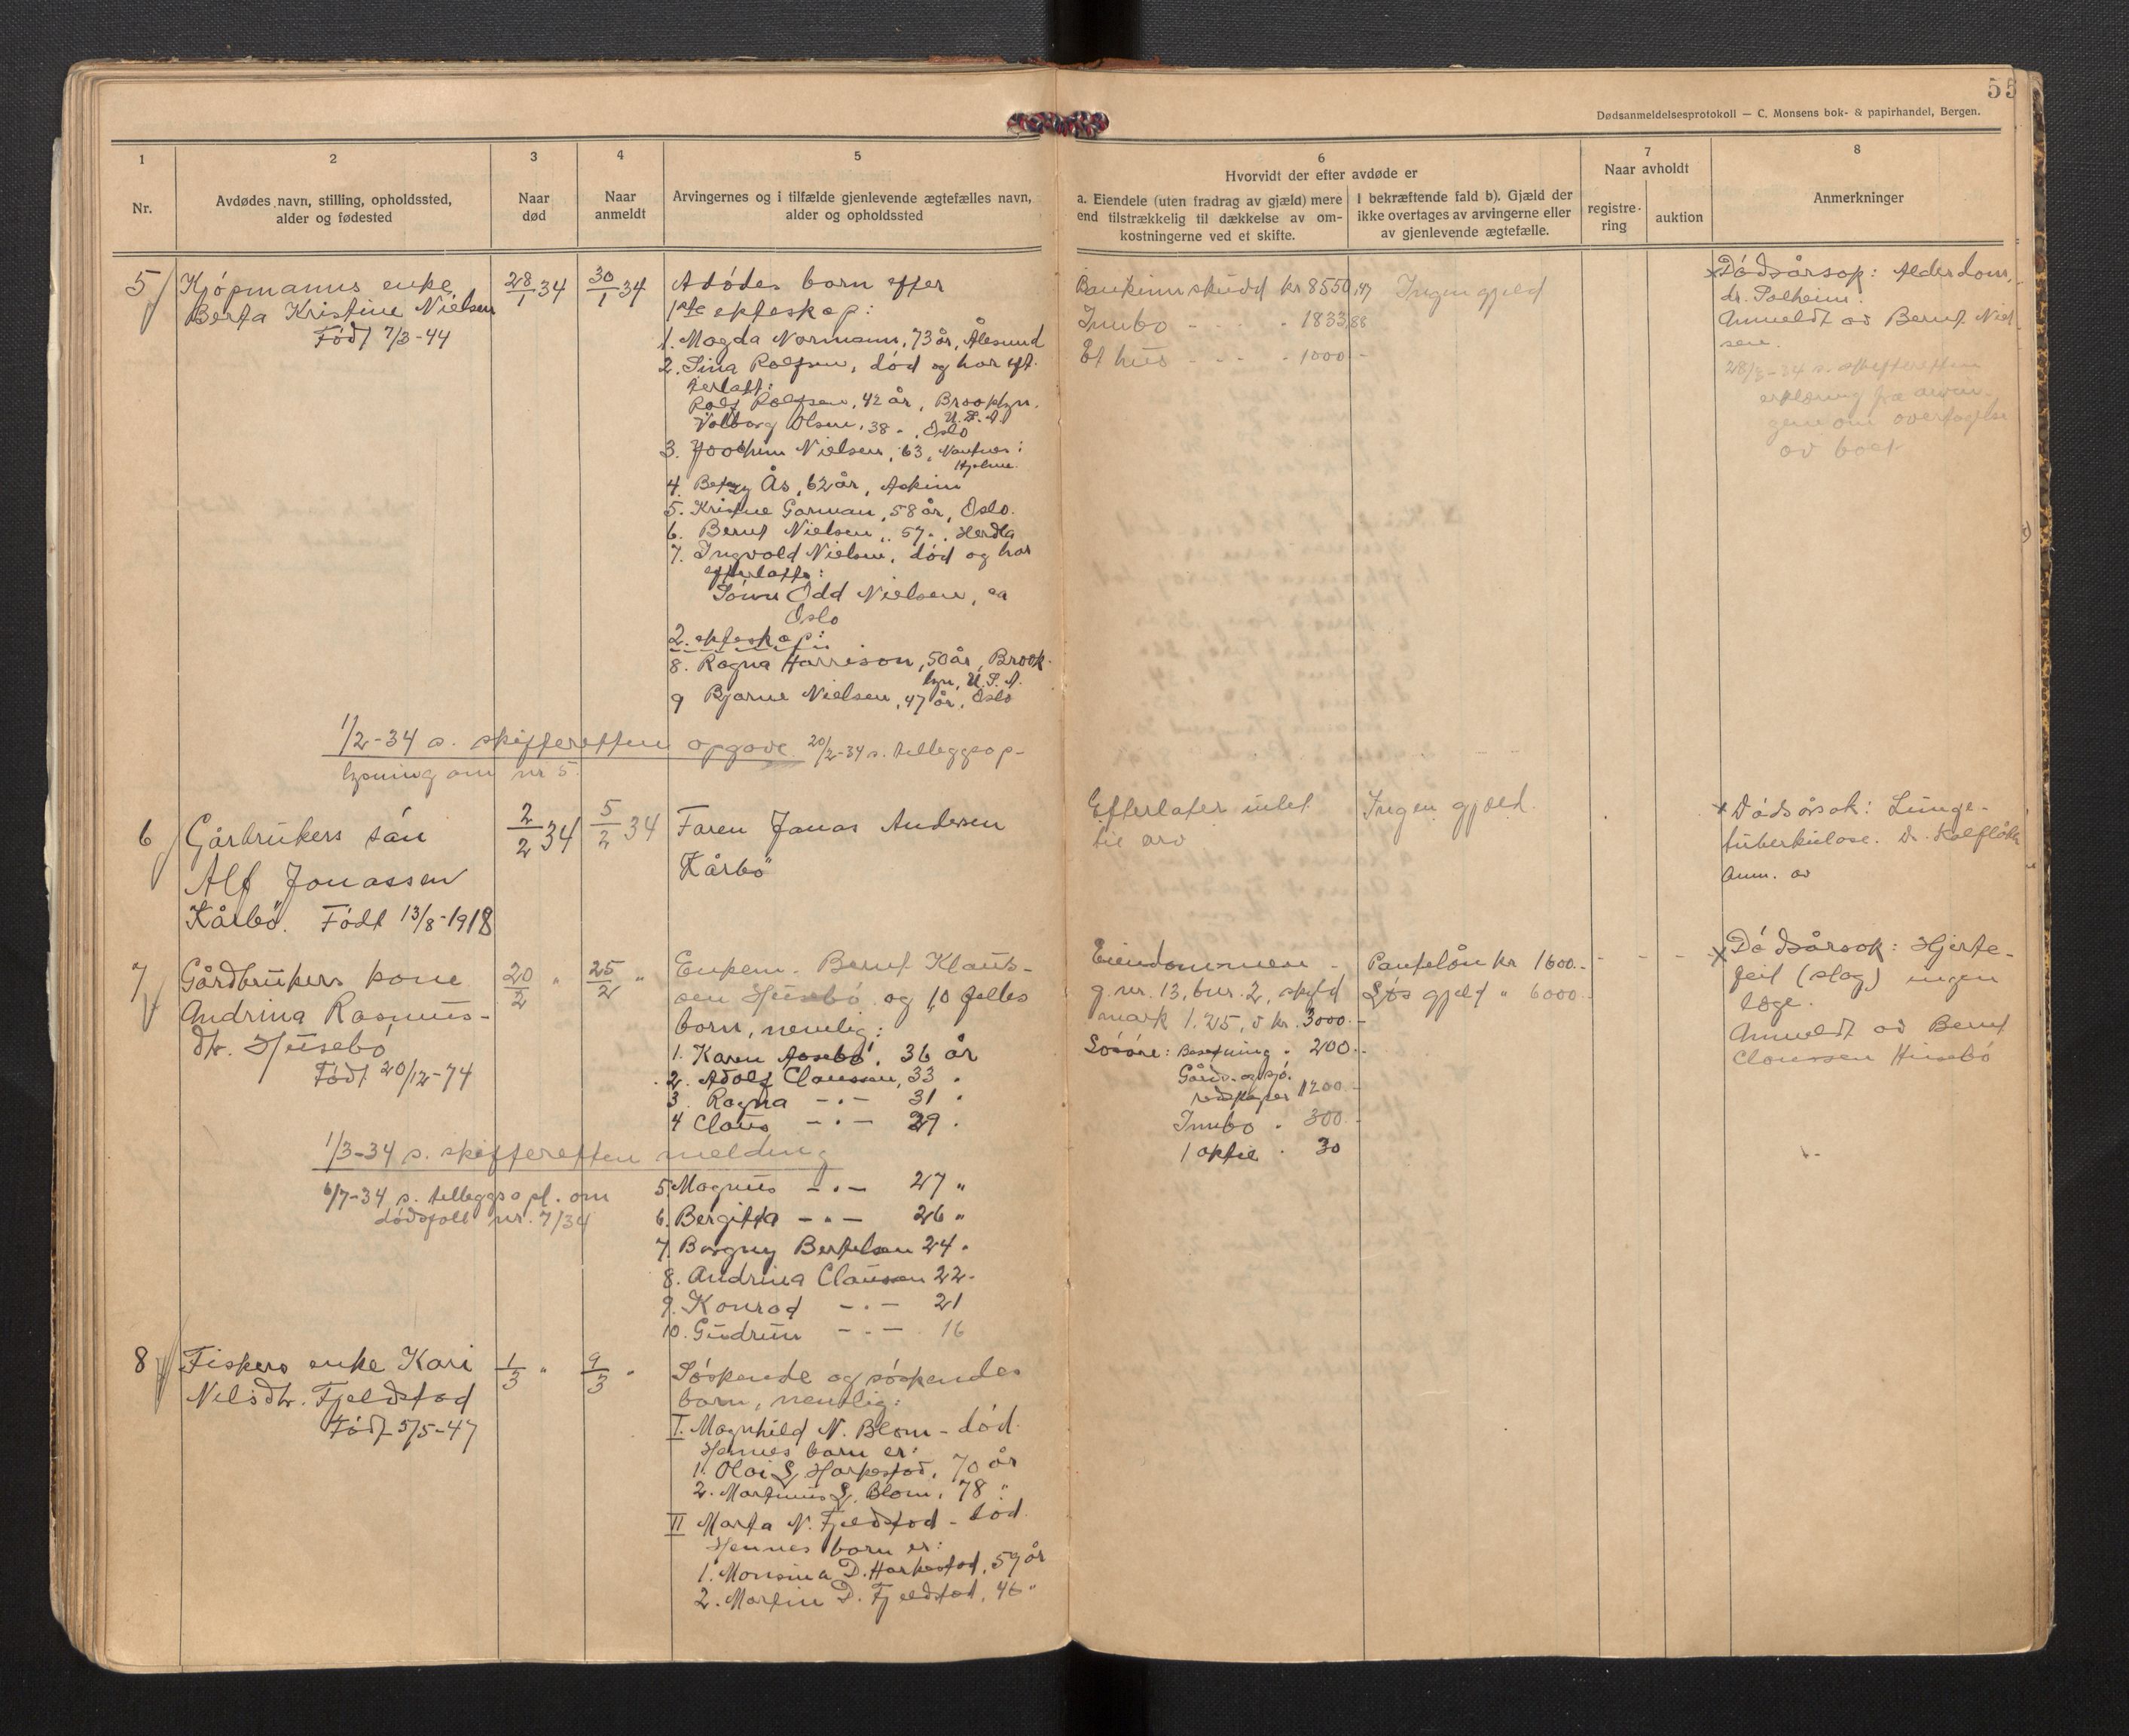 55
Dødsanmeldelsesprotokoll — C. Monsens bok- & papirhandel, Bergen.
1
Nr.
2
Avdødes navn, stilling, opholdssted,
alder og fødested
3
Naar
død
4
Naar
anmeldt
5
Arvingernes og i tilfælde gjenlevende ægtefælles navn,
alder og opholdssted
6
Hvorvidt der efter avdøde er
a. Eiendele (uten fradrag av gjæld) mere
end tilstrækkelig til dækkelse av om-
kostningerne ved et skifte.
I bekræftende fald b). Gjæld der
ikke overtages av arvingerne eller
av gjenlevende ægtefælle.
7
Naar avholdt
registre-
ring
auktion
8
Anmerkninger
5
Kjøpmanns enke
Berta Kristine Nielsen
Født 7/3-44
28/1 34
30/1 34
Adødes born efter
1ste ekteskap:
1. Magda Normann, 73 år, Ålesund
2. Sina Rolfsen, død og har eft-
terlatt:
Rolf Rolfsen, 42 år, Brooklyn.
U.S.A.
Valborg Olsen, 38 " , Oslo
3. Joachim Nielsen, 63,
Hjelme.
4. Betzy Ås, 62 år, Askim
5. Kristine Garman, 58 år, Oslo.
6. Bernt Nielsen, 57 " , Herdla
7. Ingvald Nielsen, død og har
efterlatt:
Sønn Odd Nielsen, ca
Oslo
2. ekteskap:
8. Ragna Harrison, 50 år, Brook-
lyn, U.S.A.
9 Bjarne Nielsen, 47 år, Oslo
Bankinnskudd kr 8550,47
Innbo - - - " 1833,88
Et hus - - - " 1000 -
Ingen gjeld
x Dødsårsok: Alderdom,
dr. Solheim.
Anmeldt av Bernt Niel-
sen.
28/3-34 s. skifteretten
erklæring fra arvin-
gene om overtagelse
av boet
1/2-34 s. skifteretten opgave 20/2-34 s. tilleggsop-
lysning om nr 5.
6
Gårbrukers søn
Alf Jonassen
Kårbö. Født 13/8-1918
2/2 34
5/2 34
Faren Jonas Andersen
Kårbö
Efterlater intet
til arv
Ingen gjeld.
x Dødsårsok: Lunge-
tuberkulose. Dr. Kalfløtta
Anm. av
7
Gårdbrukers kone
Andrina Rasmus-
dtr. Husebø
Født 20/12-74
20/2 "
25/2 "
Enkem. Bernt Klaus-
sen Husebø og 10 felles
born, nemlig:
1. Karen Aasebø, 36 år
2. Adolf Clausen, 33 "
3. Ragna - " - 31 "
4 Claus - " - 29 "
Eiendommen -
g.nr. 13, bnr. 2, skyld
mark 1.25, v kr. 3000.-
Løsøre: Besetning " 200.-
Gårds- og sjø-
redskaper 1200.-
Innbo " 300.-
1 aktie " 30
Pantelån kr 1600.-
Løs gjeld " 6000.-
- - -
x Dødsårsok: Hjerte-
feil (slag) ingen
læge.
Anmeldt av Bernt
Claussen Husebø
1/3-34 s. skifteretten melding
6/7-34 s. tilleggsopl. om
dødsfall nr. 7/34
5. Magnus - " - 27 "
6. Bergitta - " - 26 "
7. Borgny Bertelsen 24 "
8. Andrina Clausen 22 "
9. Konrad - " - 21
10. Gudrun - " - 16
8
Fiskers enke Kari
Nilsdtr. Fjeldstad
Født 5/5-47
1/3 "
9/3 "
Søskende og søskendes
barn, nemlig:
I. Magnhild N. Blom - død.
Hennes barn er:
1. Olai L. Harkestad, 70 år
2. Martinus L. Blom, 78 "
II Marta N. Fjeldstad - død.
Hennes barn er:
1. Monsina D. Harkestad, 59 år
2. Martin D. Fjeldstad, 46 "